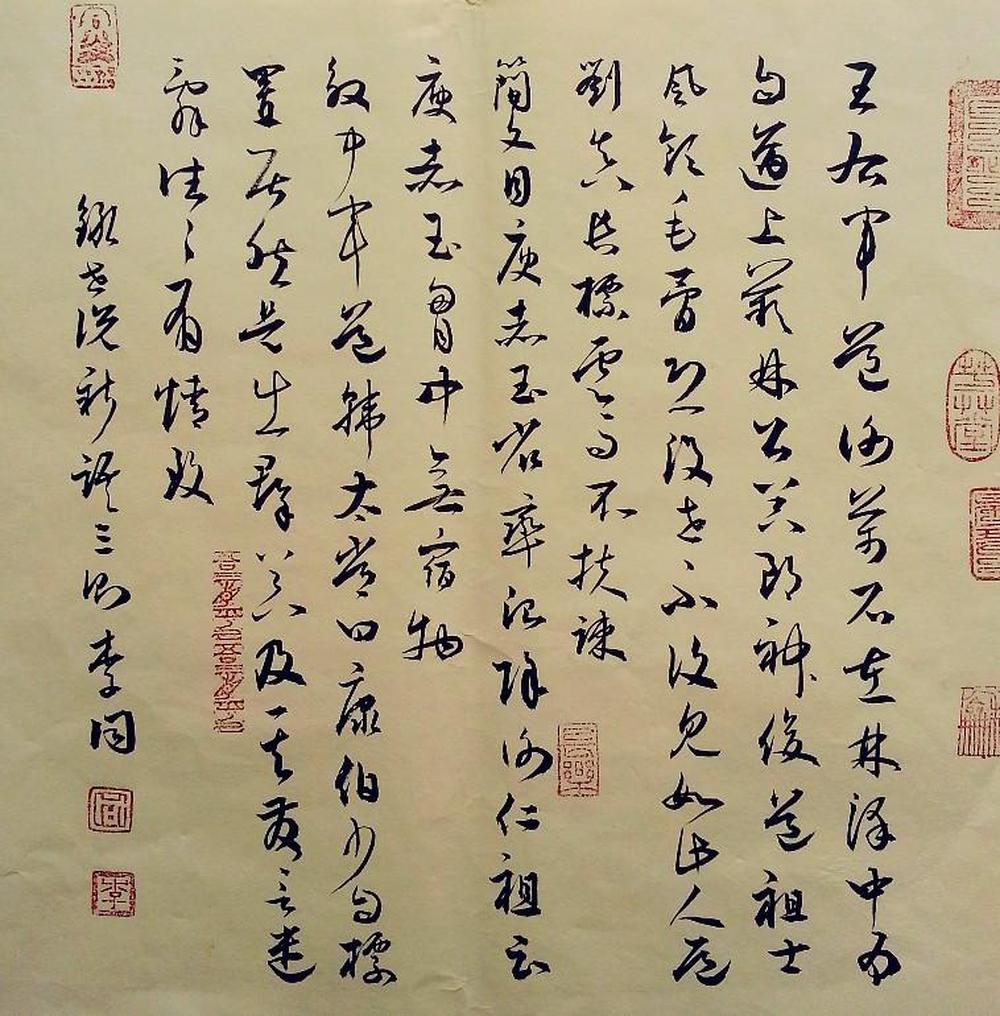 王右軍道謝萬石在林澤中為
自遒上嘆林公器朗神俊道祖士
風領毛骨恐没世不復見如此人道
劉真長標雲而不扶疎
簡文目庾赤玉省率治除謝仁祖云
庾赤玉胸中無宿物
殷中軍道韓太常曰康伯少自標
置居然是出群器及其發言遣
辭往々有情致
錄世說新語三則李同
李